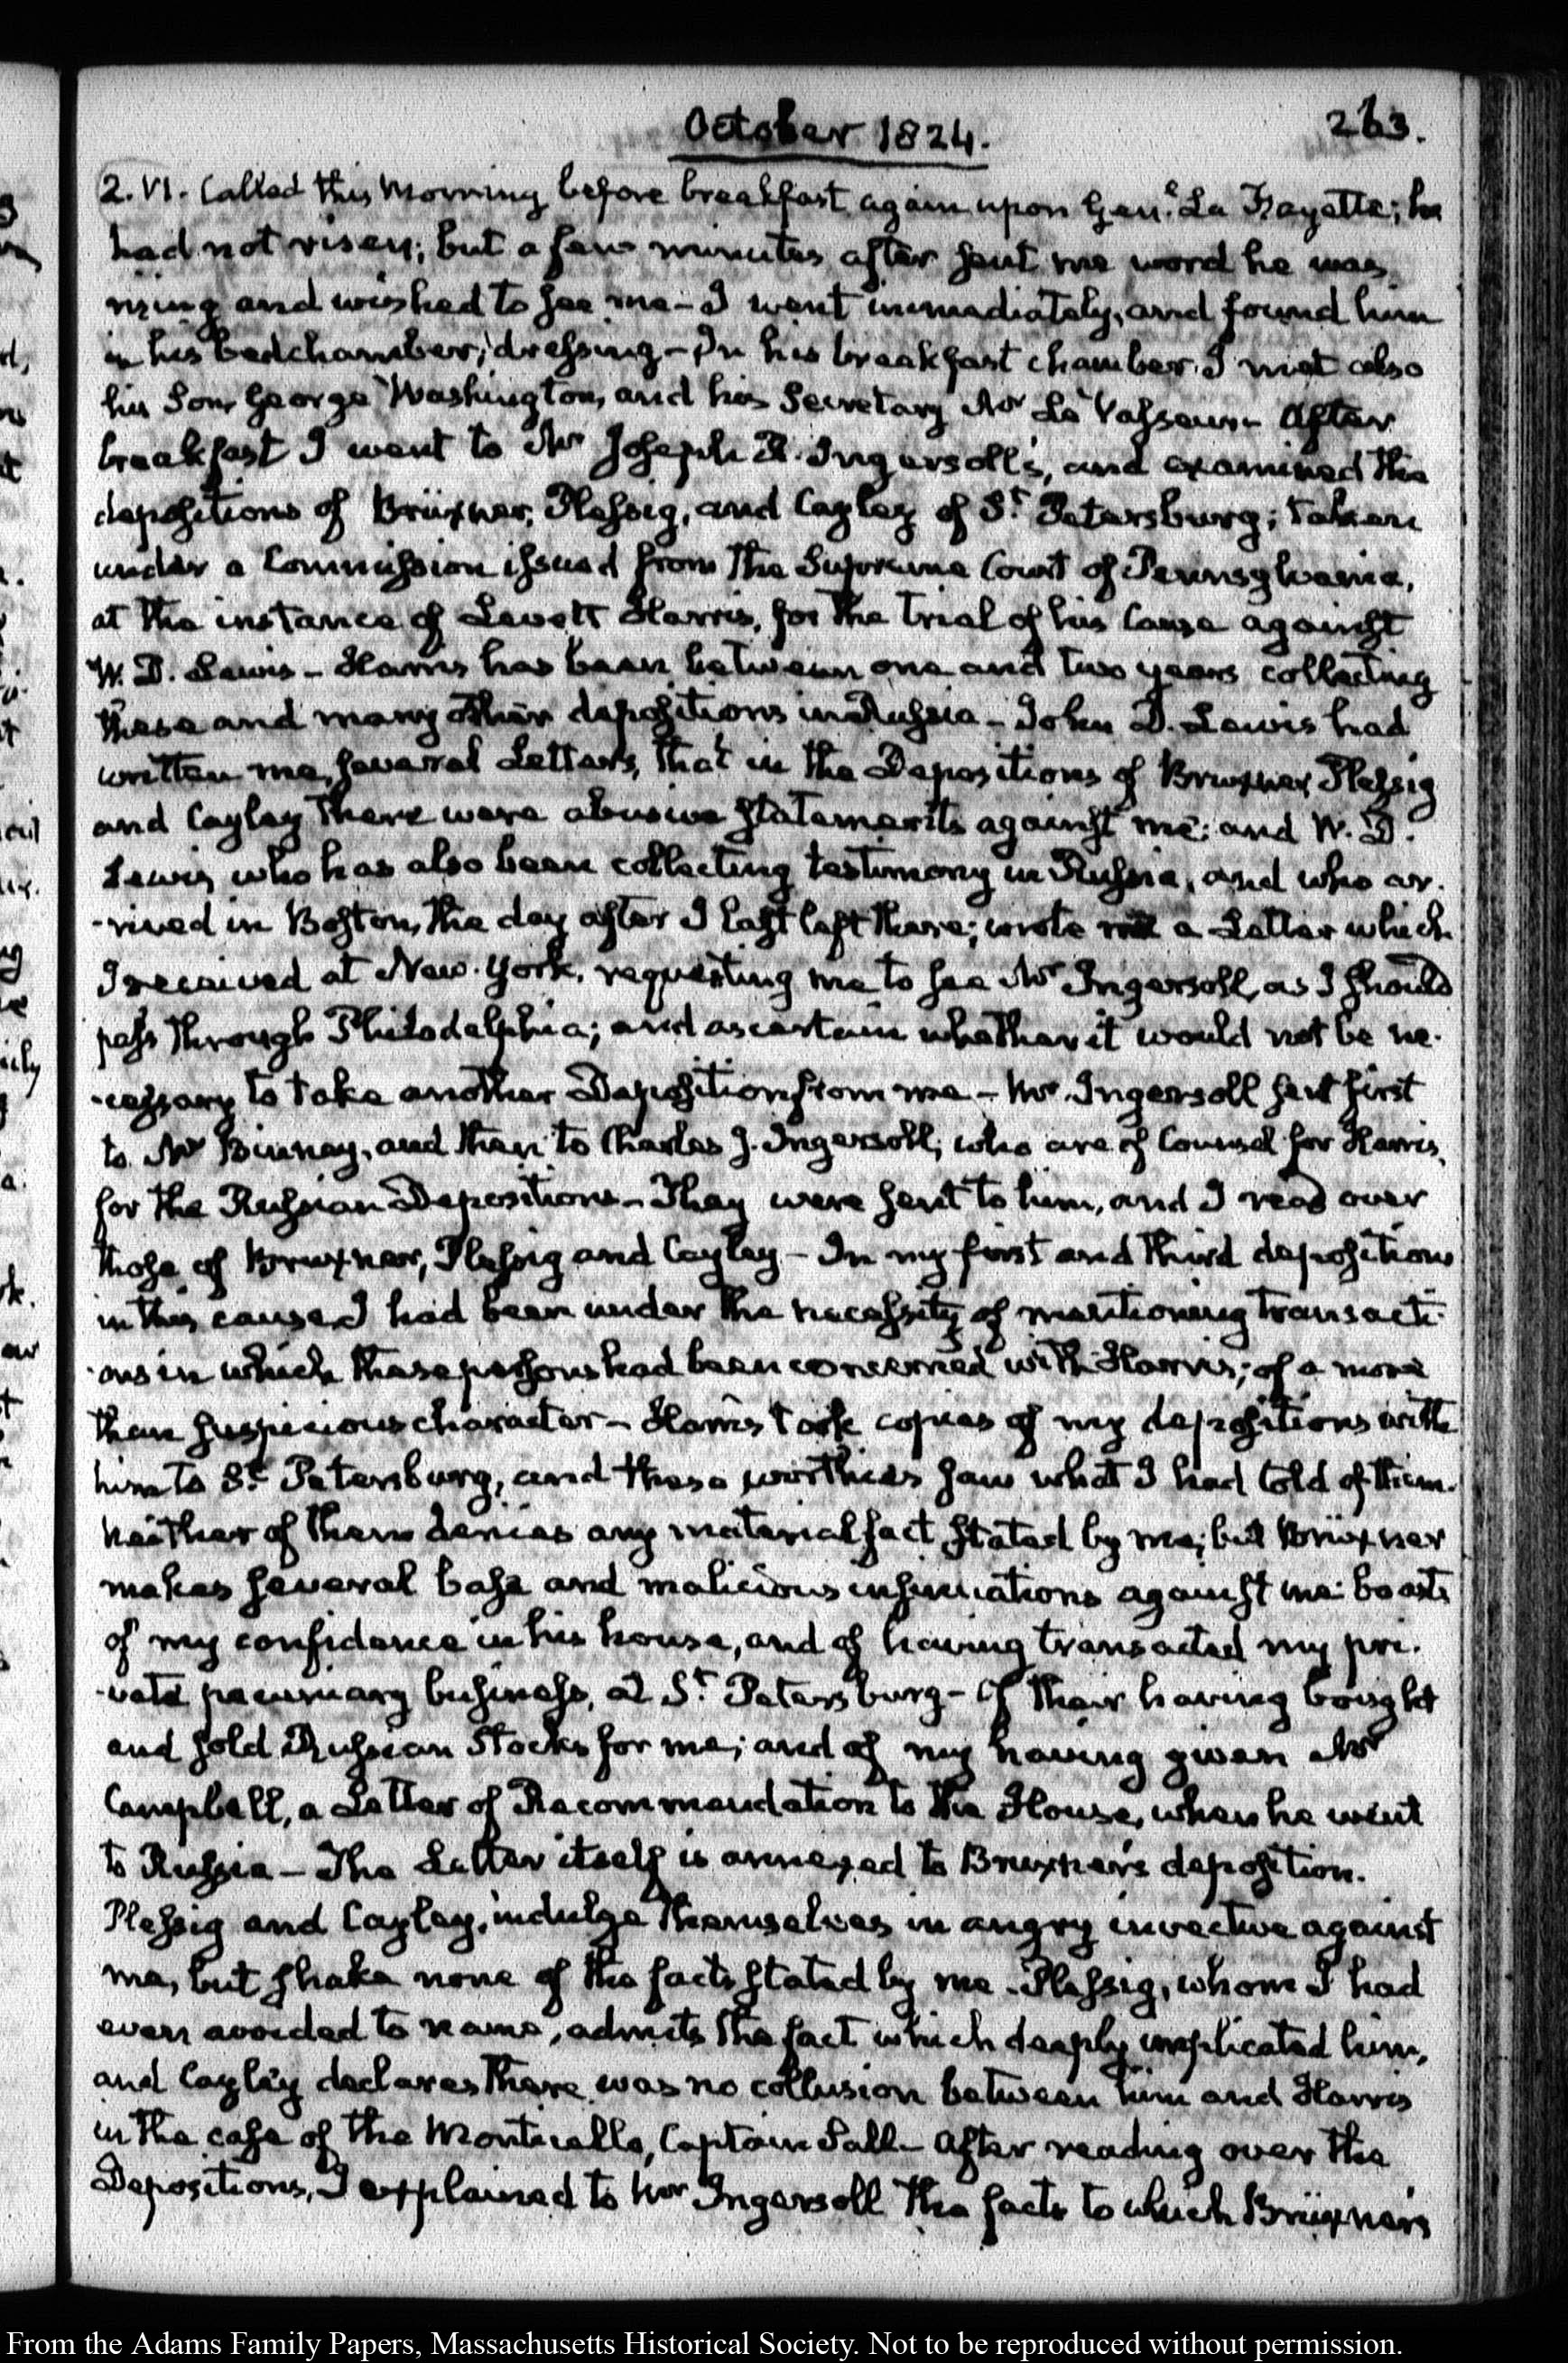 October 1824.
263.
2. VI. Called this Morning before breakfast again upon Genl. La Fayette; he
had not risen; but a few minutes after sent me word he was
rising and wished to see me - I went immediately, and found him
in his bedchamber, dressing - In his breakfast chamber I met also
his Son, George Washington, and his Secretary Mr Le Vasseur - After
breakfast I went to Mr Joseph R. Ingersoll's, and examined the
depositions of Brüxner, Plessig, and Cayley of St. Petersburg; taken
under a Commission issued from the Supreme Court of Pennsylvania,
at the instance of Levett Harris, for the trial of his Cause against
W. D. Lewis - Harris has been between one and two years collecting
these and many other depositions in Russia - John D. Lewis had
written me, several Letters, that in the Depositions of Bruxner, Plessig
and Cayley there were abusive statements against me: and W. D.
Lewis who has also been collecting testimony in Russia, and who ar-
-rived in Boston, the day after I last left there; wrote me a Letter which
I received at New-York, requesting me to see Mr Ingersoll, as I should
pass through Philadelphia; and ascertain whether it would not be ne-
-cessary to take another Deposition from me - Mr Ingersoll sent first
to Mr Binney, and then to Charles J. Ingersoll, who are of Counsel for Harris,
for the Russian Depositions - They were sent to him, and I read over
those of Bruxner, Plessig and Cayley - In my first and third depositions
in this cause I had been under the necessity of mentioning transacti-
-ons in which these persons had been concerned with Harris; of a more
than suspicious character - Harris took copies of my depositions with
him to St. Petersburg, and these worthies saw what I had told of them.
Neither of them denies any material fact stated by me; but Brüxner
makes several base and malicious insinuations against me: boasts
of my confidence in his house, and of having transacted my pri-
-vate pecuniary business, at St. Petersburg - Of their having bought
and sold Russian Stocks for me; and of my having given Mr
Campbell, a Letter of Recommendation to the House, when he went
to Russia - The Letter itself is annexed to Bruxner's deposition.
Plessig and Cayley, indulge themselves in angry invective against
me, but shake none of the facts stated by me - Plessig, whom I had
even avoided to name, admits the fact which deeply implicated him,
and Cayley declares there was no collusion between him and Harris
in the case of the Monticello, Captain Sall - After reading over the
Depositions, I explained to Mr Ingersoll the facts to which Brüxner's
From the Adams Family Papers, Massachusetts Historical Society. Not to be reproduced without permission.